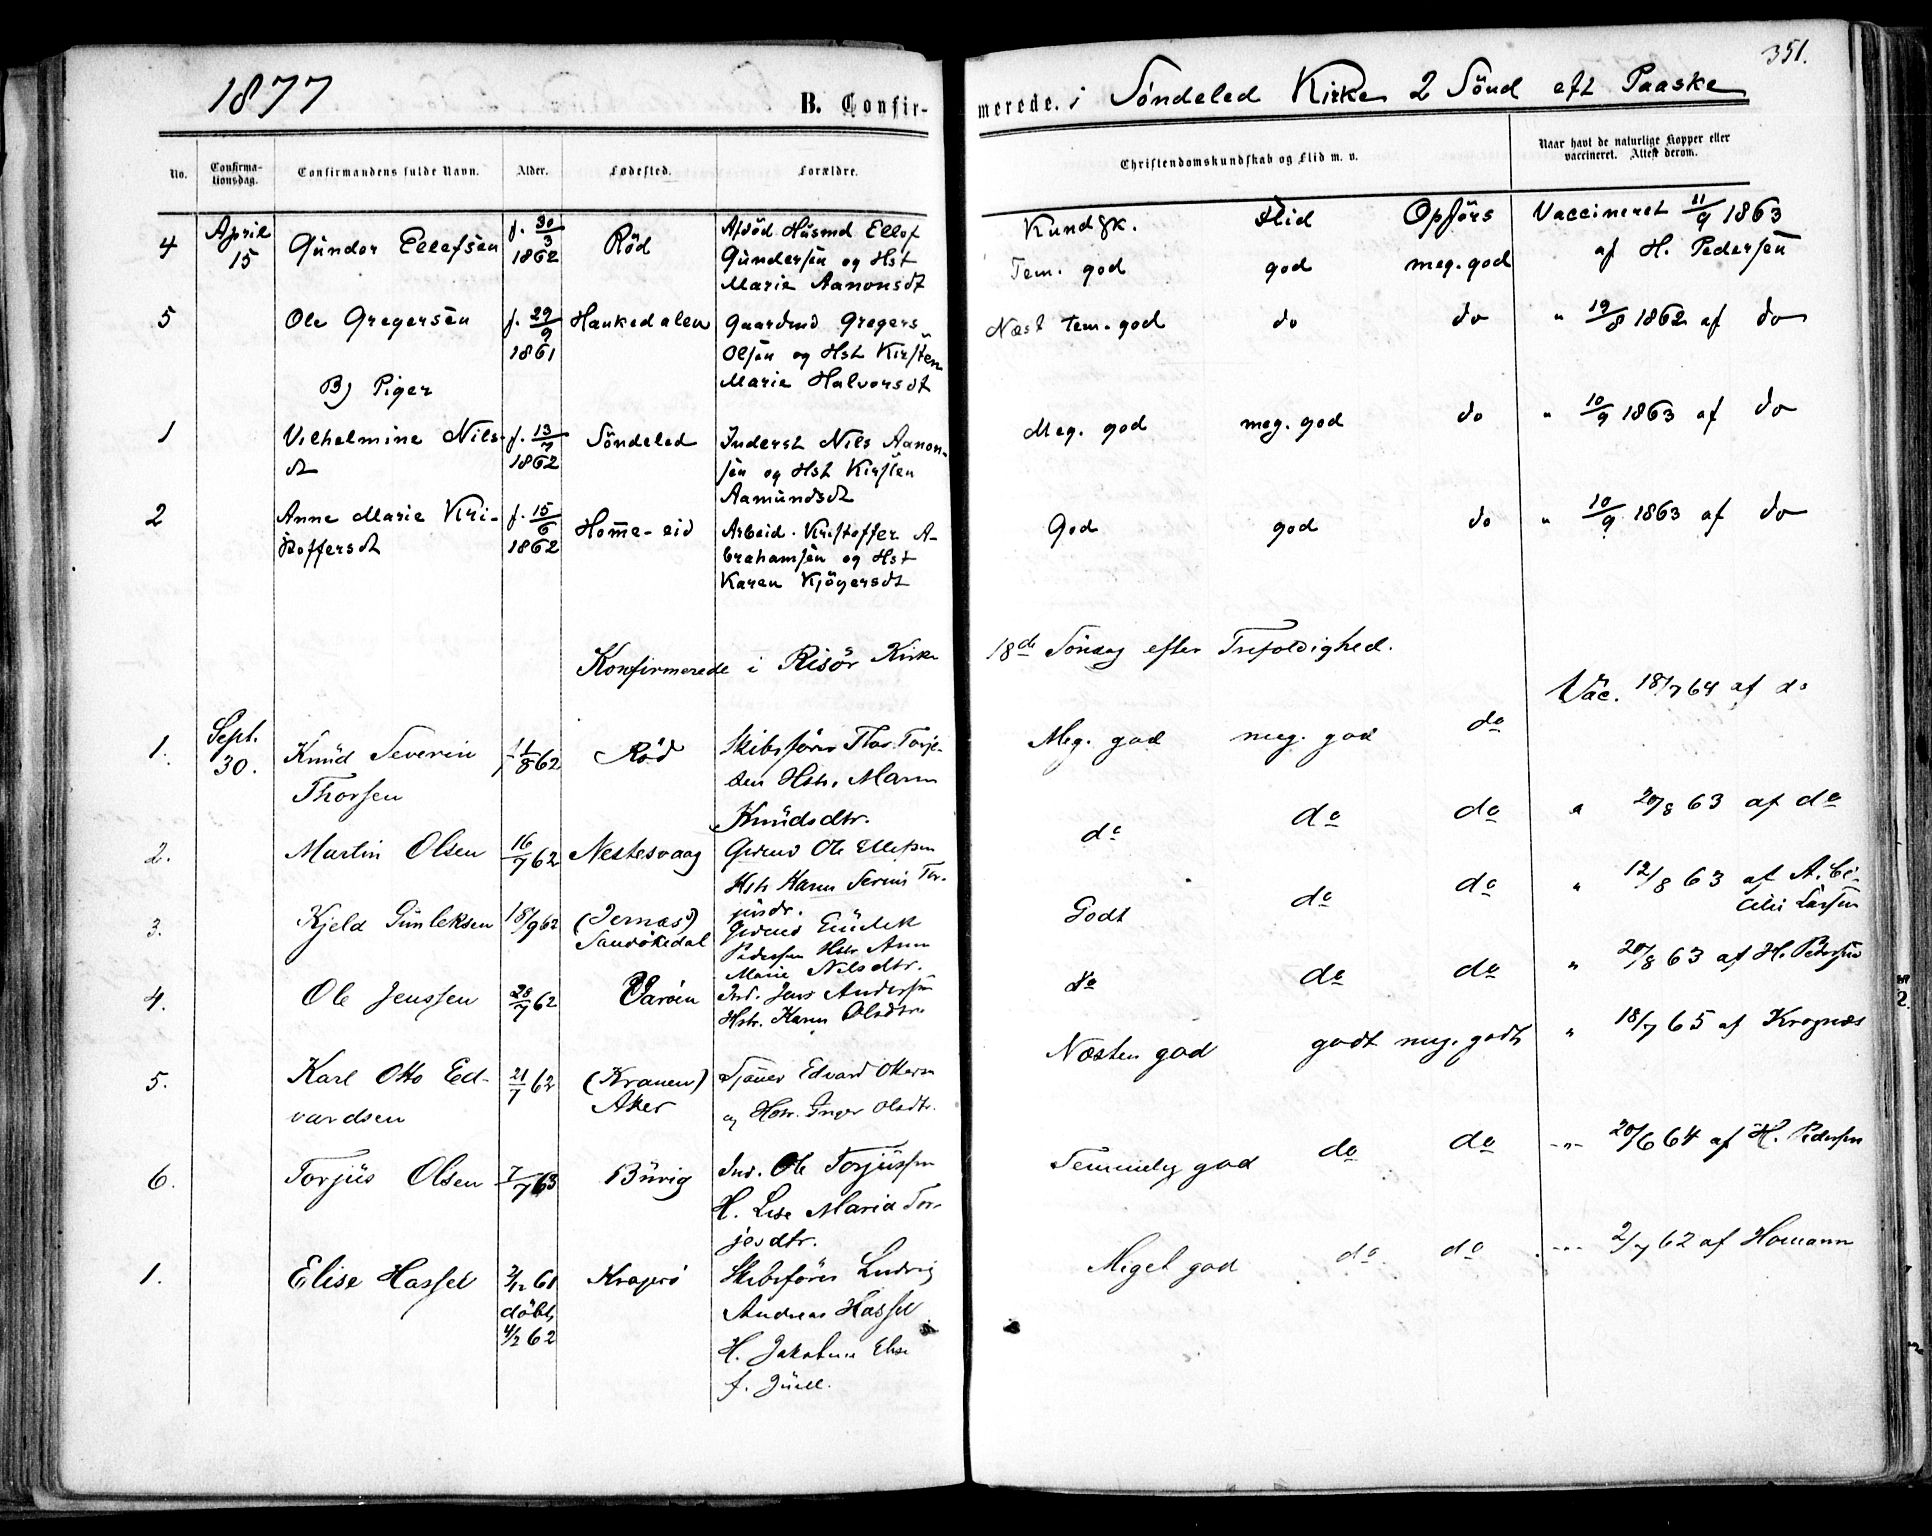 351.
1877 B. Confir- merede. i Söndeled Kirke 2 Sönd eft Paaske
No. Confirma-tionsdag. Confirmandens fulde Navn. Alder. Fødested. Forældre. Christendomskundskab og Flid m. v. Naar havt de naturlige Kopper eller vaccineret. Attest derom.
4 April 15 Gunder Ellefsen f. 30/3 1862 Röd Afdöd Husmd Ellef
Gundersen og Hst
Marie Aanonsdt
Kundsk. Flid Opförs Vaccineret 11/9 1863
Tem. god god meg. god af H. Pedersen
5 Ole Gregersen f. 29/9 1861 Haukedalen Gaardmd Gregers
Olsen og Hst Kirsten
Marie Halvorsdt
Næst tem. god do do " 19/8 1862 af do
B) Piger
1 Vilhelmine Nils-
dt f. 13/7 1862 Söndeled Inderst Nils Aanon-
sen og Hst Kirsten
Aamundsdt
Meg. god meg. god do " 10/9 1863 af do
2 Anne Marie Kri-
stoffersdt f. 15/6 1862 Homme-eid Arbeid. Kristoffer A-
brahamsen og Hst
Karen Kjögersdt
God god do " 10/9 1863 af do
Konfirmerede i Risör Kirke 18de Söndag efter Trefoldighed.
1. Sept. 30. Knud Severin
Thorsen f 1/8 62 Röd Skibsförer Thor Torje-
sen Hstr. Maren
Knudsdtr.
Meg. god meg. god do Vac. 18/7 64 af do
2. Martin Olsen 16/7 62 Nestesvaag Grdmd Ole Ellefsen
Hstr Karen Serine Tor-
jusdr.
do do do " 20/8 63 af do
3. Kjeld Gunleksen 18/9 62 (Jernæs)
Sandökedal Grdmd Gunlek
Pedersen Hstr Ann
Marie Nilsdtr.
Godt do do " 12/8 63 af A. Ce-
cilie Larsen
4. Ole Jenssen 28/7 62 Varöen Ind. Jens Andersen
Hstr. Karen Olsdtr.
do do do " 20/8 63 af H. Pedersen
5. Karl Otto Ed-
vardsen 21/7 62 (Kranen)
Aker Sjömd Edvard Ottersen
og Hstr. Inger Olsdtr.
Næsten god godt meg. godt " 18/7 65 af Krognæs
6. Torjus Olsen 7/7 63 Burig Ind. Ole Torjussen
H. Lise Maria Tor-
jesdtr.
Temmelig god do do -"- 20/6 64 af H. Pedersen
1. Elise Hassel 2/12 61
döbt
4/2 62 Kragerö Skibsförer Ludvig
Andreas Hassel
H. Jakobine Elise
f. Juell.
Meget god do do -"- 2/7 62 af Homann